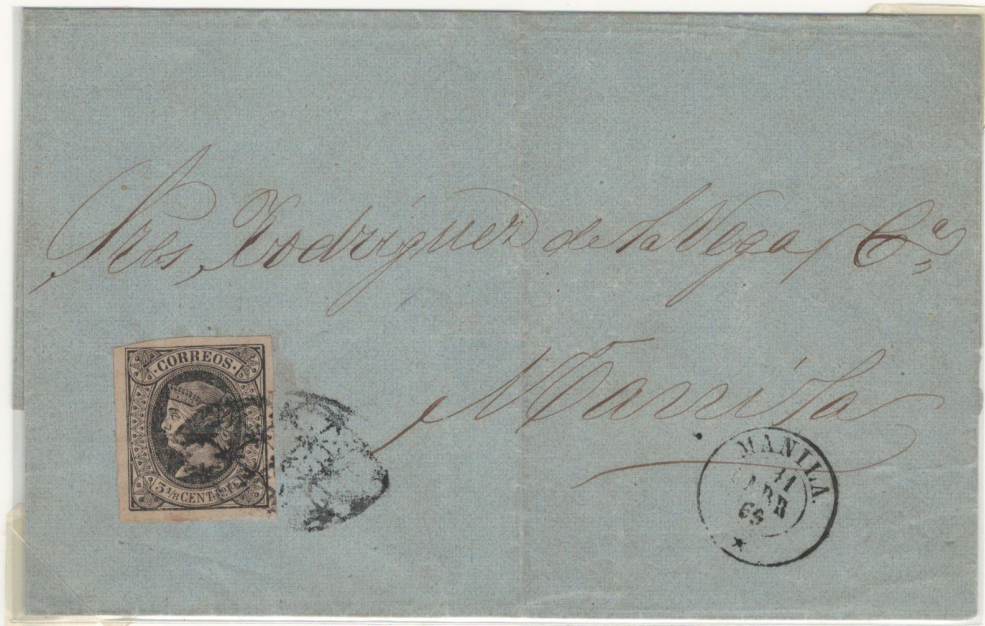 Sres, Rodriguez de la Vega y Ca
Manila
CORREOS
3 1/8 CENT
MANILA
11
ABR